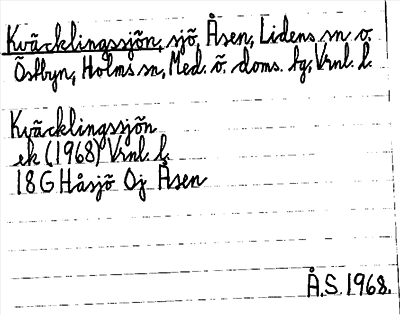 Kväcklingssjön, sjö, Åsen, Lidens sn o.
Östbyn, Holms sn, Med. ö. doms. tg, Vrnl. l.
Kväcklingssjön
ek (1968) Vrnl. l.
18G Håsjö Oj Åsen
Å.S. 1968.